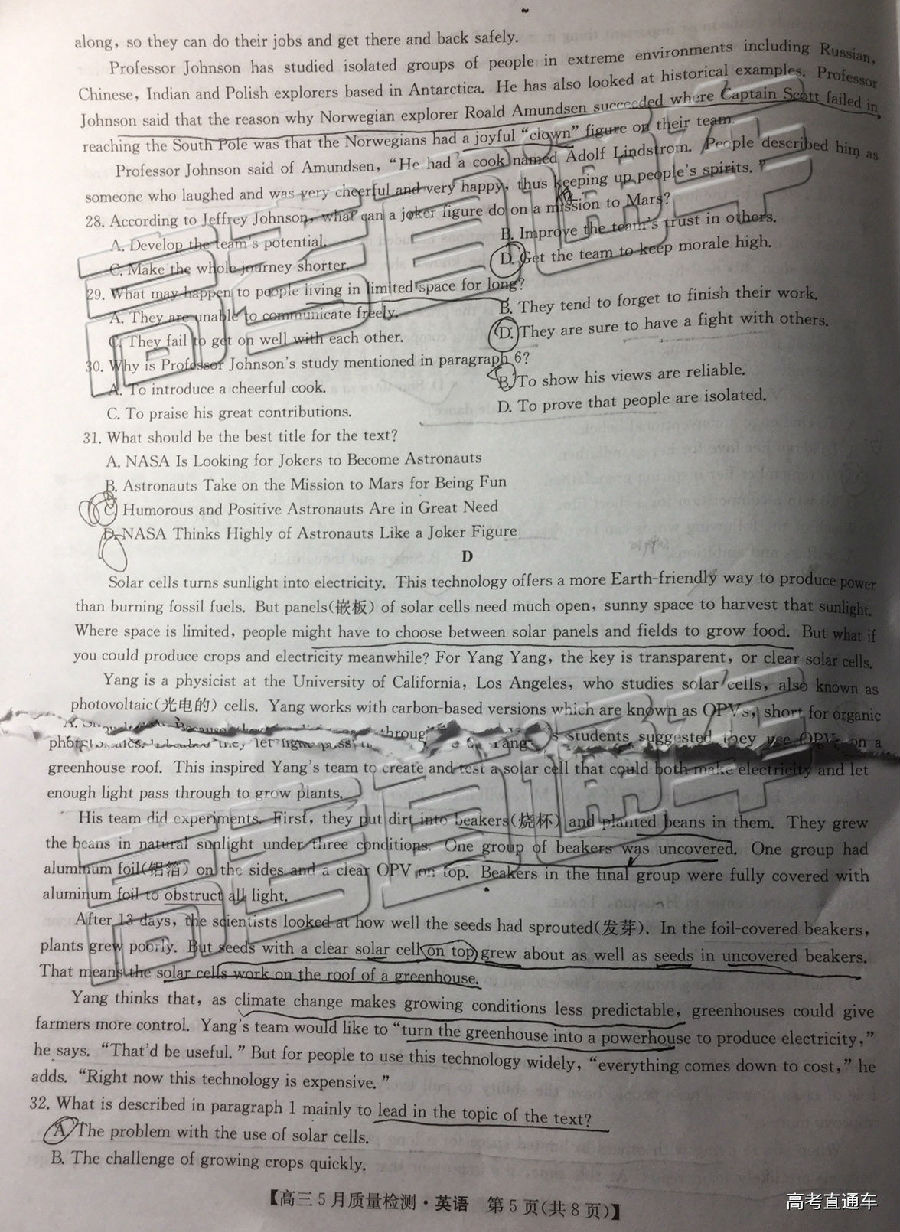 along, so they can do their jobs and get there and back safely.
Professor Johnson has studied isolated groups of people in extreme environments including Russian,
Chinese, Indian and Polish explorers based in Antarctica. He has also looked at historical examples. Professor
Johnson said that the reason why Norwegian explorer Roald Amundsen succeeded where Captain Scott failed in
reaching the South Pole was that the Norwegians had a joyful "clown" figure on their team.
Professor Johnson said of Amundsen, "He had a cook named Adolf Lindstrom. People described him as
someone who laughed and was very cheerful and very happy, thus keeping up people's spirits."
28. According to Jeffrey Johnson, what can a joker figure do on a mission to Mars?
A. Develop the team's potential.
B. Improve the team's trust in others.
C. Make the whole journey shorter.
D. Get the team to keep morale high.
29. What may happen to people living in limited space for long?
A. They are unable to communicate freely.
B. They tend to forget to finish their work.
C. They fail to get on well with each other.
D. They are sure to have a fight with others.
30. Why is Professor Johnson's study mentioned in paragraph 6?
A. To introduce a cheerful cook.
B. To show his views are reliable.
C. To praise his great contributions.
D. To prove that people are isolated.
31. What should be the best title for the text?
A. NASA Is Looking for Jokers to Become Astronauts
B. Astronauts Take on the Mission to Mars for Being Fun
C. Humorous and Positive Astronauts Are in Great Need
D. NASA Thinks Highly of Astronauts Like a Joker Figure
D
Solar cells turns sunlight into electricity. This technology offers a more Earth-friendly way to produce power
than burning fossil fuels. But panels(嵌板) of solar cells need much open, sunny space to harvest that sunlight.
Where space is limited, people might have to choose between solar panels and fields to grow food. But what if
you could produce crops and electricity meanwhile? For Yang Yang, the key is transparent, or clear solar cells.
Yang is a physicist at the University of California, Los Angeles, who studies solar cells, also known as
photovoltaic(光电的) cells. Yang works with carbon-based versions which are known as OPVs, short for organic
they let light pass students suggested they use OPVs on a
greenhouse roof. This inspired Yang's team to create and test a solar cell that could both make electricity and let
enough light pass through to grow plants.
His team did experiments. First, they put dirt into beakers(烧杯) and planted beans in them. They grew
the beans in natural sunlight under three conditions. One group of beakers was uncovered. One group had
aluminum foil(铝箔) on the sides and a clear OPV on top. Beakers in the final group were fully covered with
aluminum foil to obstruct all light.
After 13 days, the scientists looked at how well the seeds had sprouted(发芽). In the foil-covered beakers,
plants grew poorly. But seeds with a clear solar cell on top grew about as well as seeds in uncovered beakers.
That means the solar cells work on the roof of a greenhouse.
Yang thinks that, as climate change makes growing conditions less predictable, greenhouses could give
farmers more control. Yang's team would like to "turn the greenhouse into a powerhouse to produce electricity,"
he says. "That'd be useful." But for people to use this technology widely, "everything comes down to cost," he
adds. "Right now this technology is expensive."
32. What is described in paragraph 1 mainly to lead in the topic of the text?
A. The problem with the use of solar cells.
B. The challenge of growing crops quickly.
【高三5月质量检测·英语 第5页(共8页)】
高考直通车